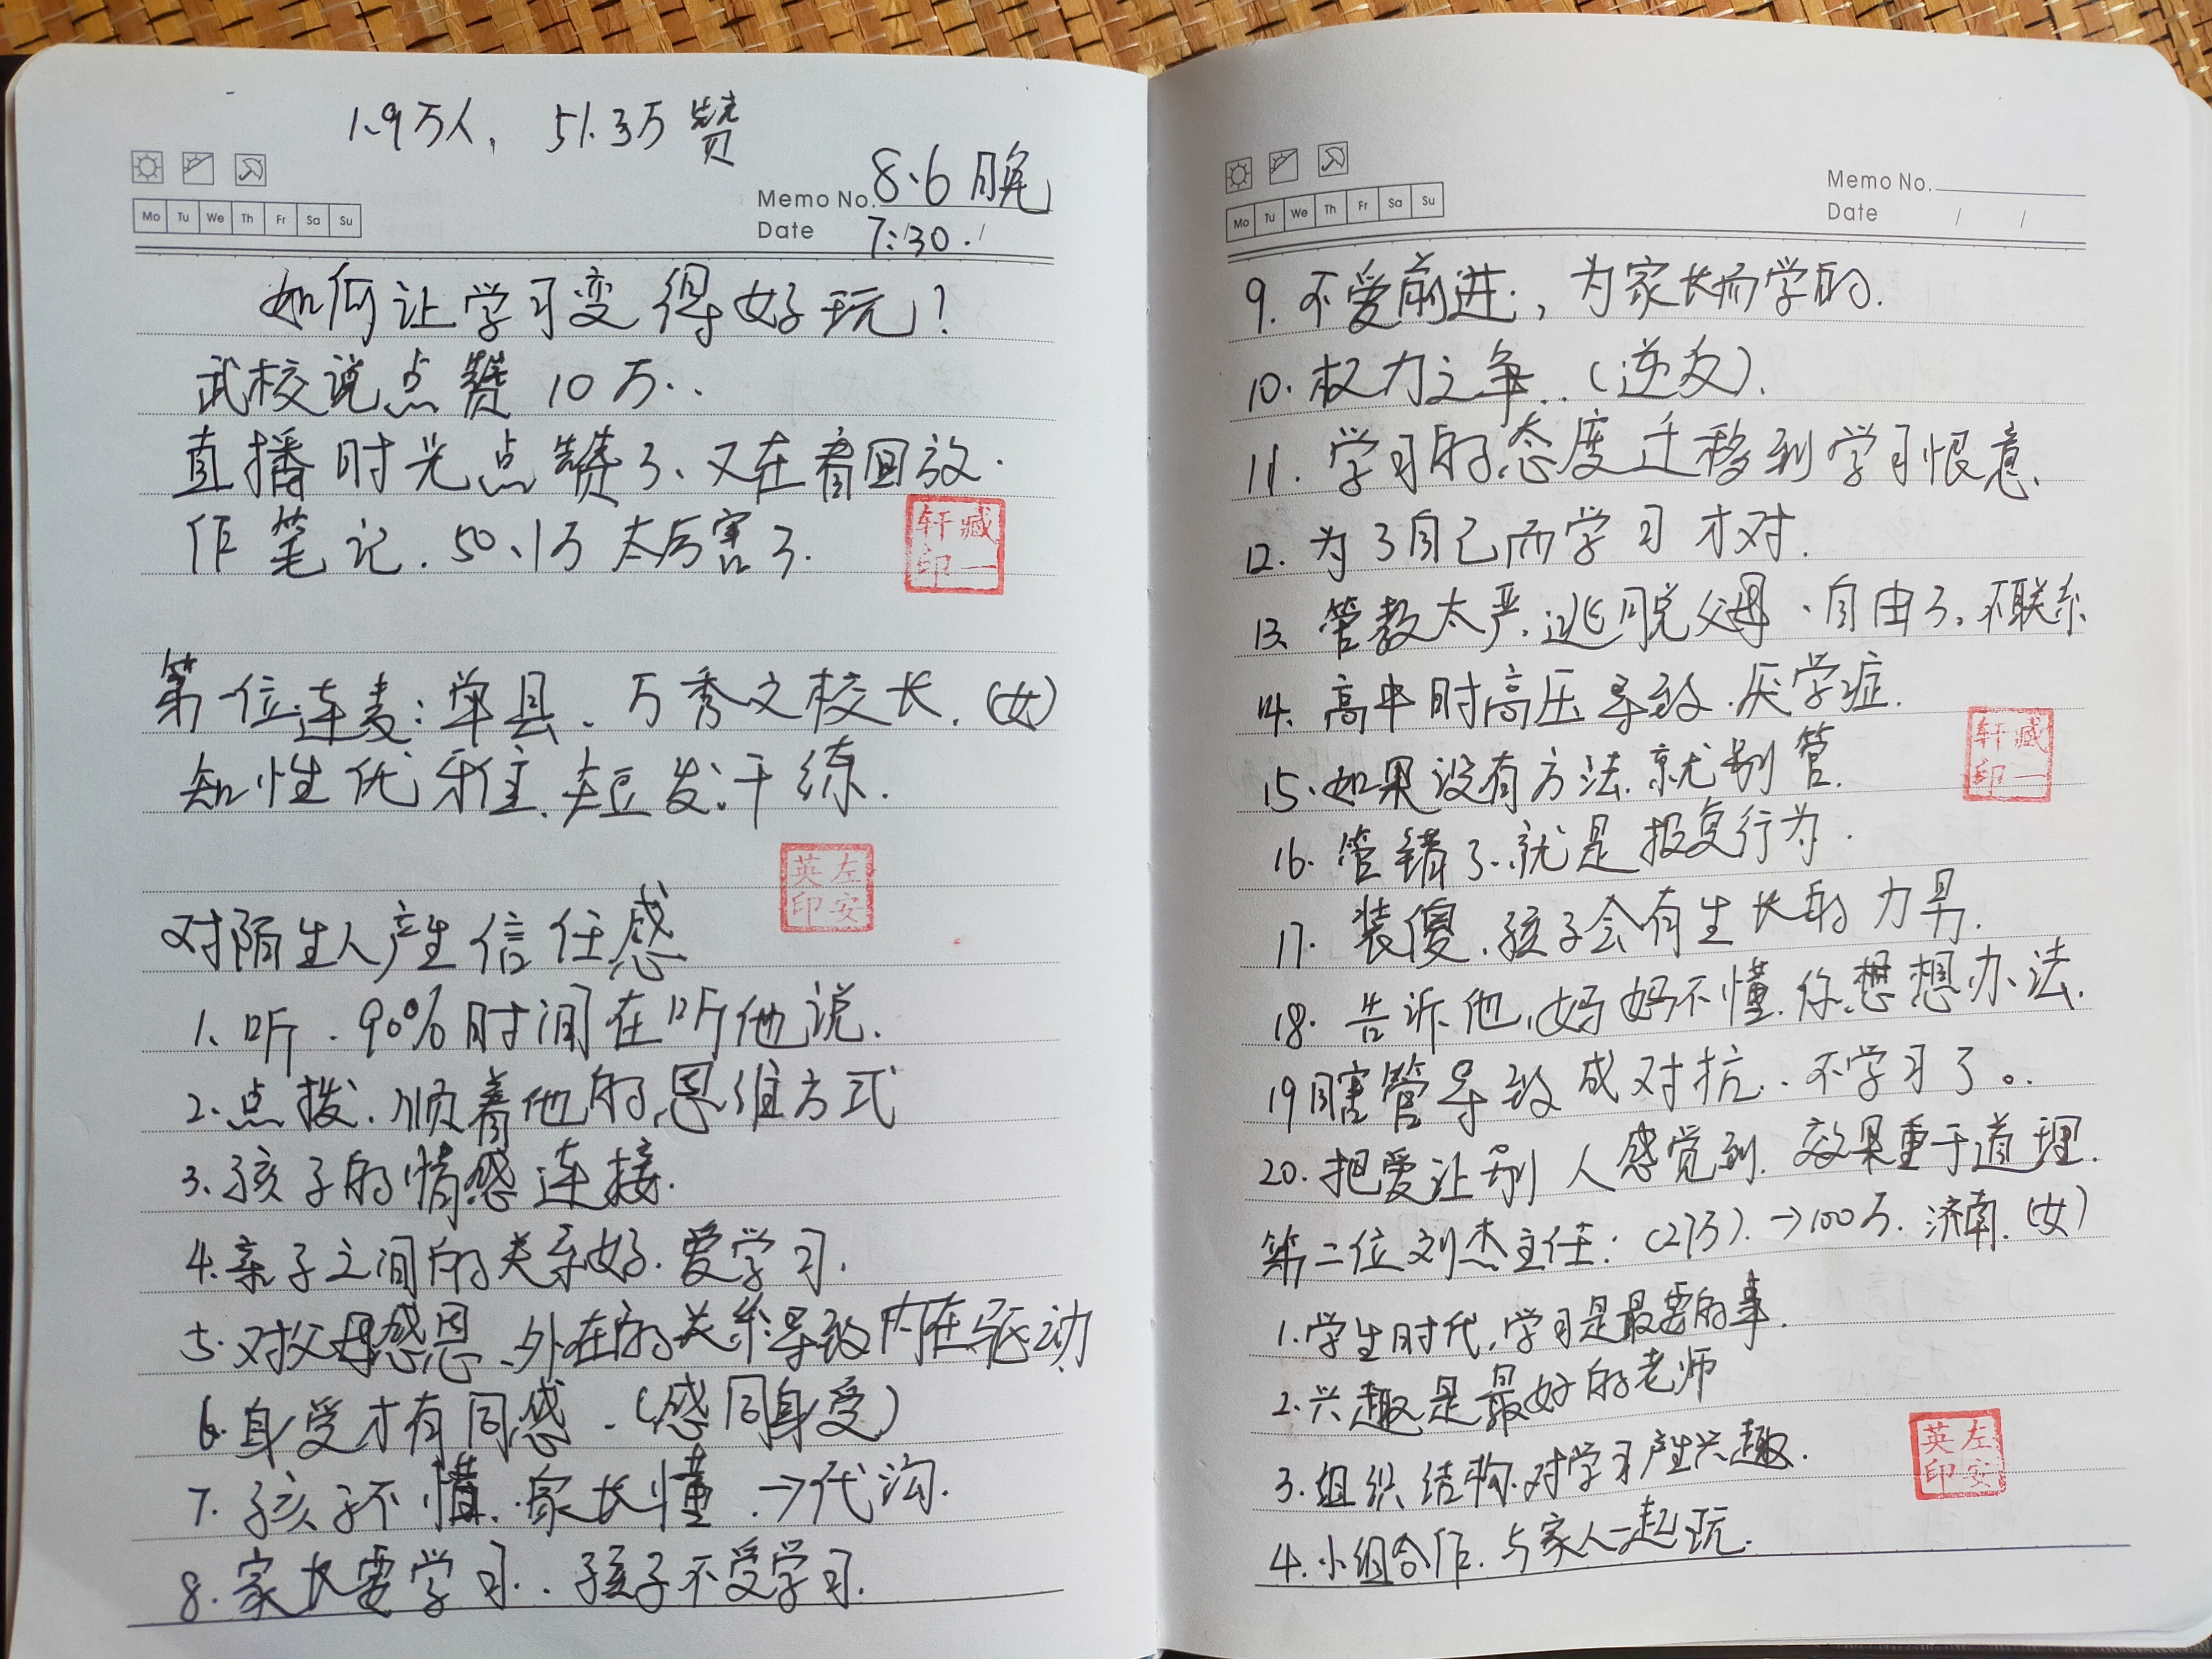 1.9万人, 51.3万赞
Mo Tu We Th Fr Sa Su
Memo No. 8.6晚
Date 7:30.
如何让学习变得好玩?
武校说点赞10万..
直播时光点赞了、又在看回放.
作笔记.50.1万太厉害了.
轩臧
印一
第一位连麦:单县、万秀文校长.(女)
知性优雅.短发.干练.
英左
印安
对陌生人产生信任感
1、听.90%时间在听他说.
2.点拨.顺着他的思维方式
3.孩子的情感连接.
4.亲子之间的关系好.爱学习.
5.对父母感恩、外在的关系导致内在驱动
6.身受才有同感.(感同身受)
7.孩子不懂.家长懂.→代沟.
8.家长要学习..孩子不受学习.
Mo Tu We Th Fr Sa Su
Memo No.
Date / /
9.不爱前进,为家长而学的.
10.权力之争..(逆反).
11.学习的态度迁移到学习恨意.
12.为了自己而学习才对.
13、管教太严.逃脱父母、自由了.不联系
14.高中时高压导致.厌学症.
15.如果没有方法.就别管.
轩臧
印一
16.管错了.就是报复行为.
17.装傻.孩子会有生长的力男.
18.告诉他,妈妈不懂.你想想办法.
19瞎管导致成对抗..不学习了。.
20.把爱让别人感觉到.效果重于道理.
第二位刘杰主任:(27万).→100万.济南.(女)
1.学生时代,学习是最要的事.
2.兴趣是最好的老师
3.组织结构.对学习产生兴趣.
英左
印安
4.小组合作.与家人一起玩.